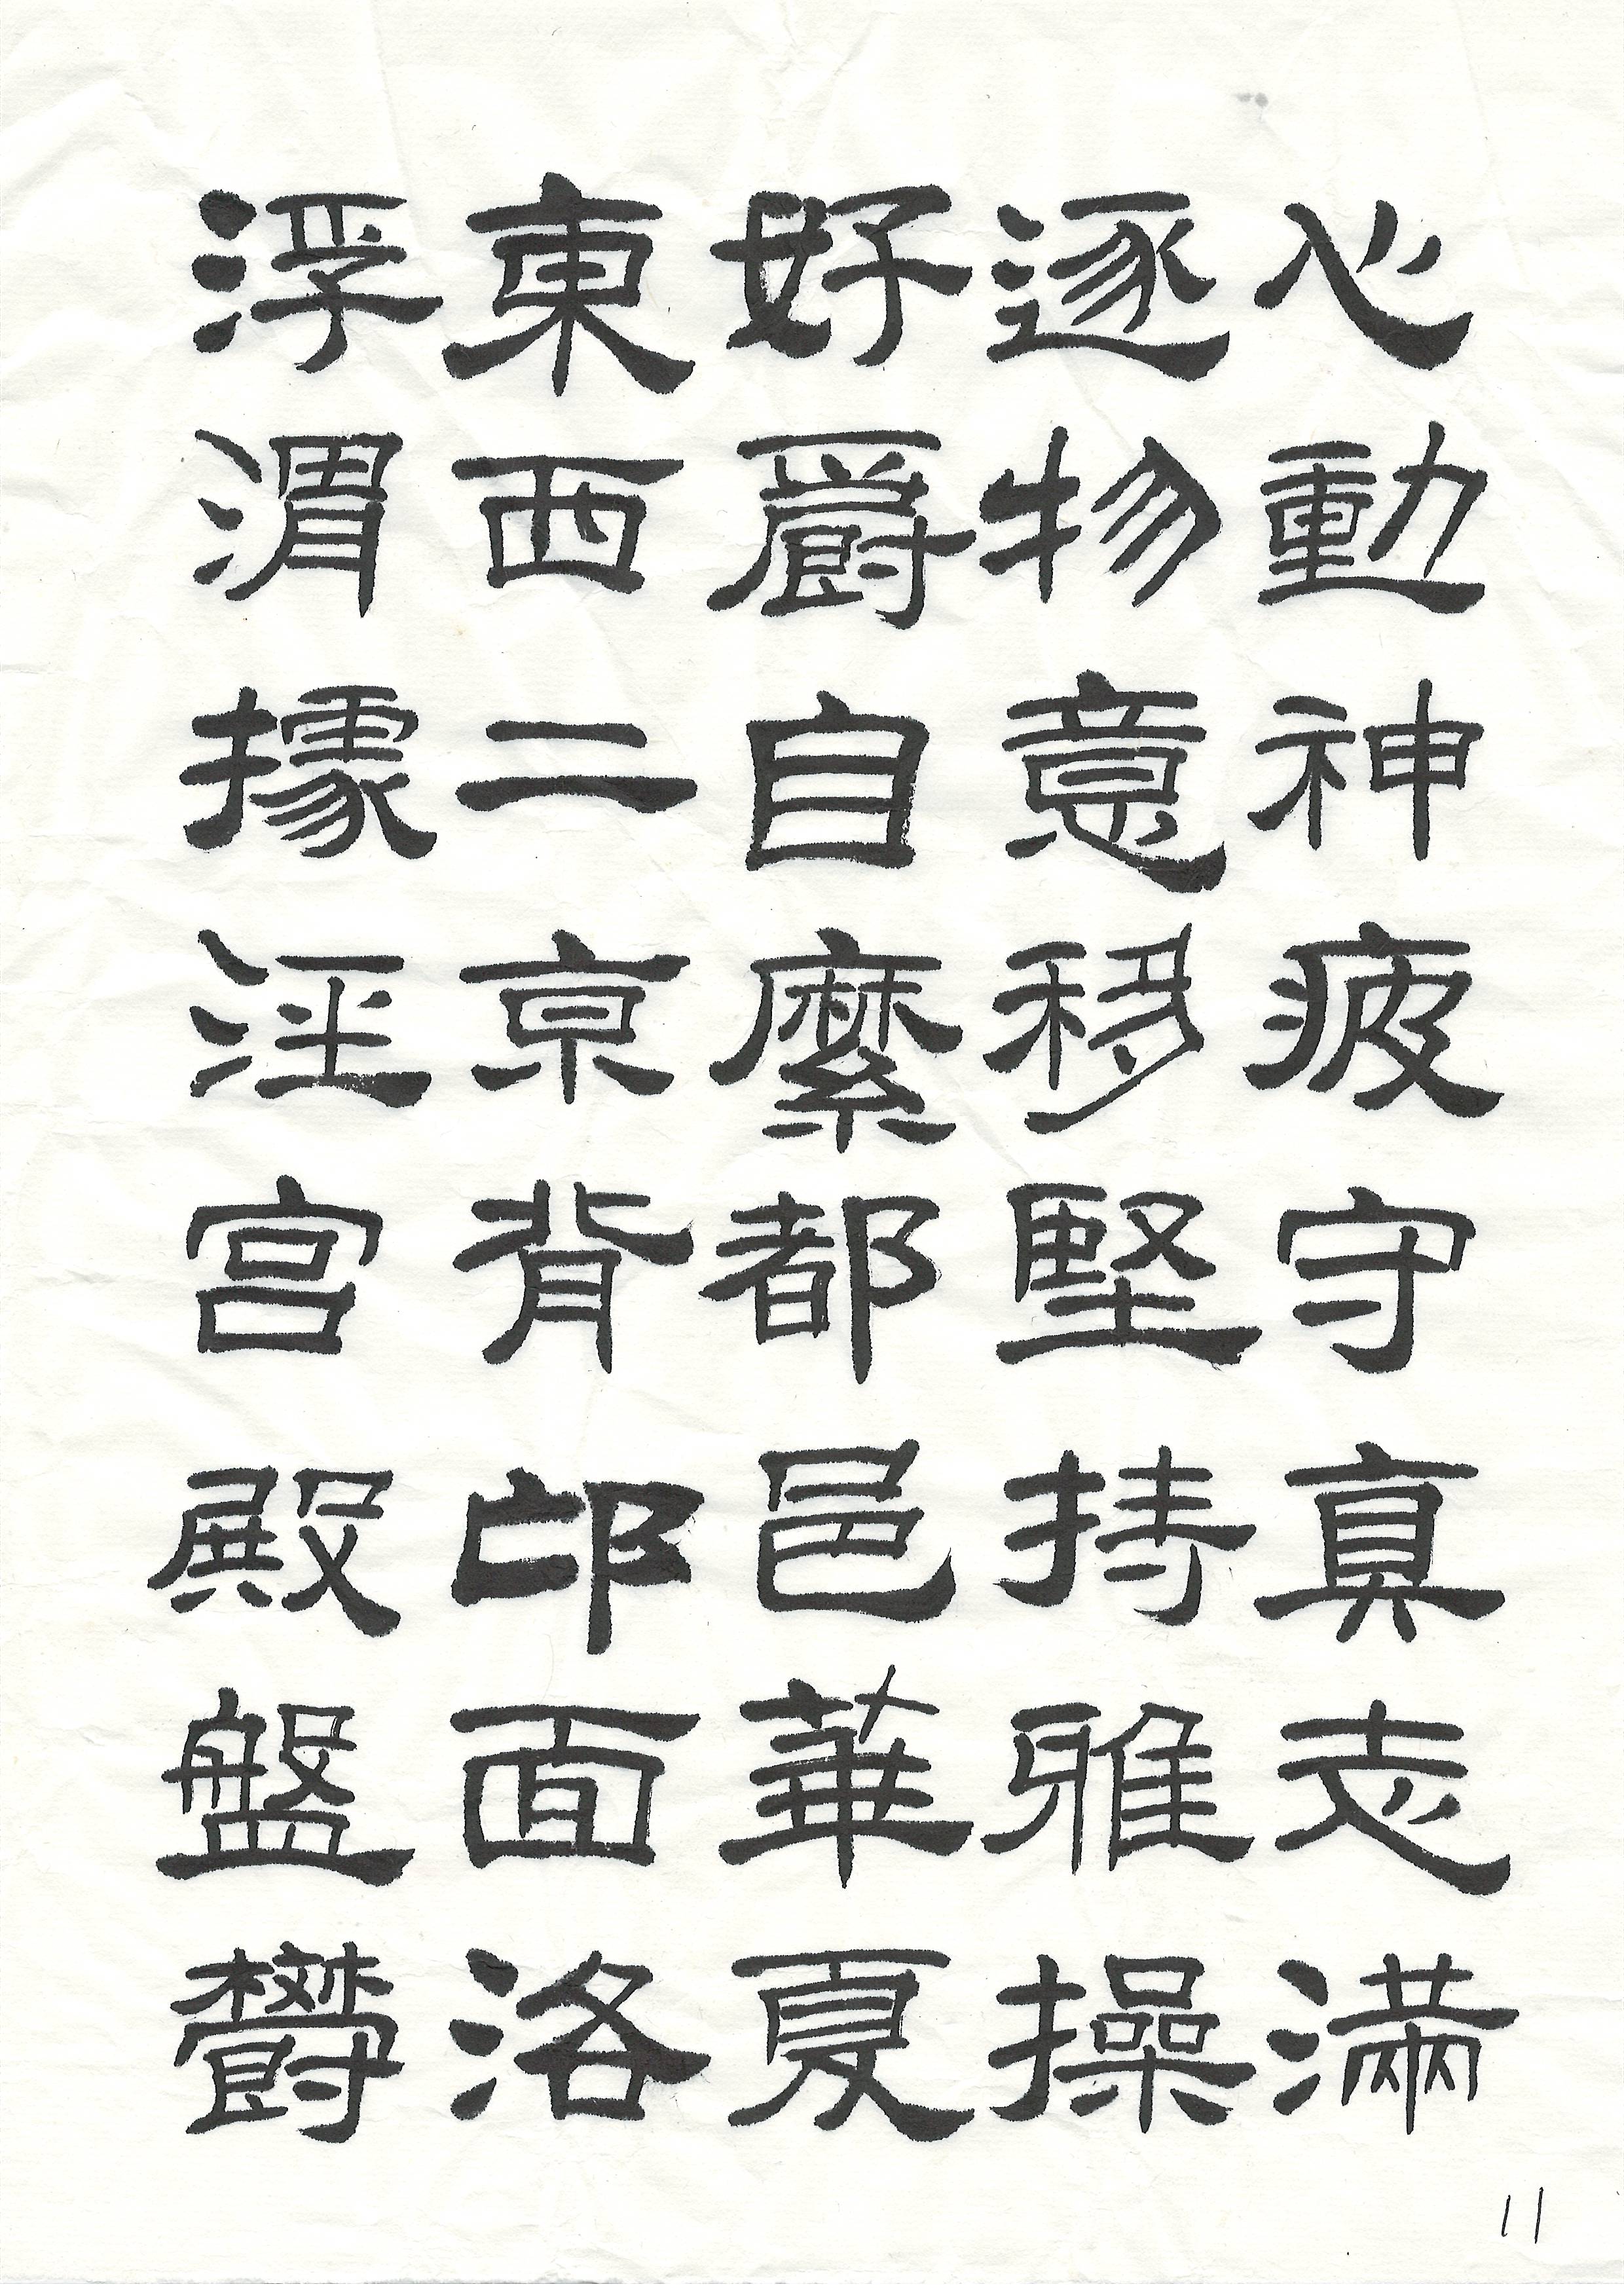 心動神疲守真志滿
逐物意移堅持雅操
好爵自縻都邑華夏
東西二京背邙面洛
浮渭據涇宮殿盤欝
11